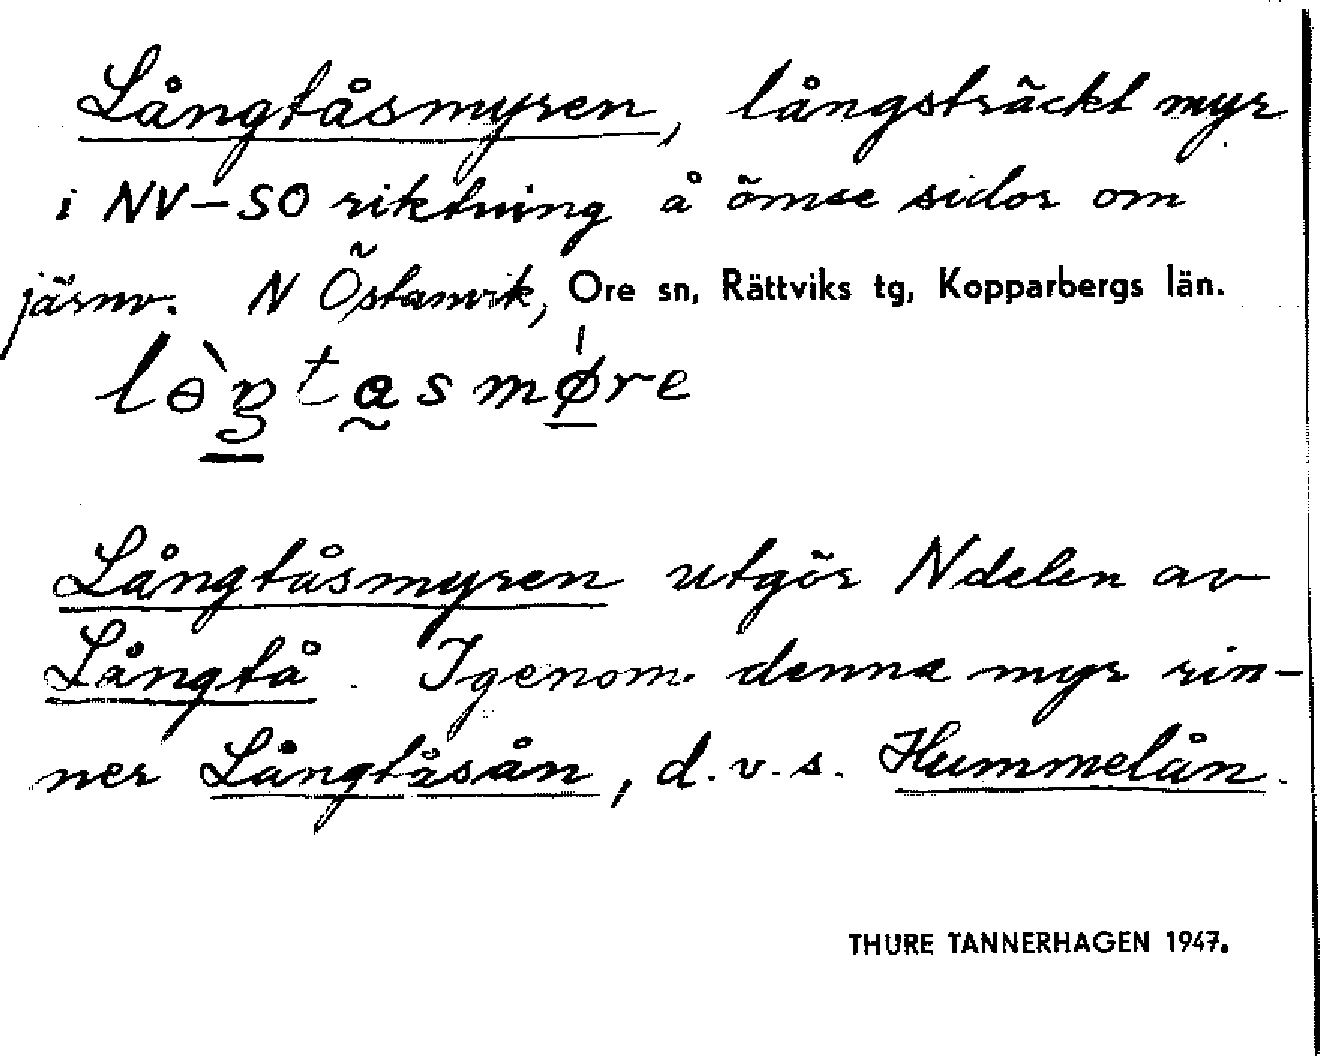 Långtåsmyren, långsträckt myr
i NV–SO riktning å ömse sidor om
järnv. N Östanvik, Ore sn, Rättviks tg, Kopparbergs län.
lɵ̀ŋtasmøre
Långtåsmyren utgör Ndelen av
Långtå. Igenom denna myr rin-
ner Långtåsån, d.v.s. Hummelån.
THURE TANNERHAGEN 1947.